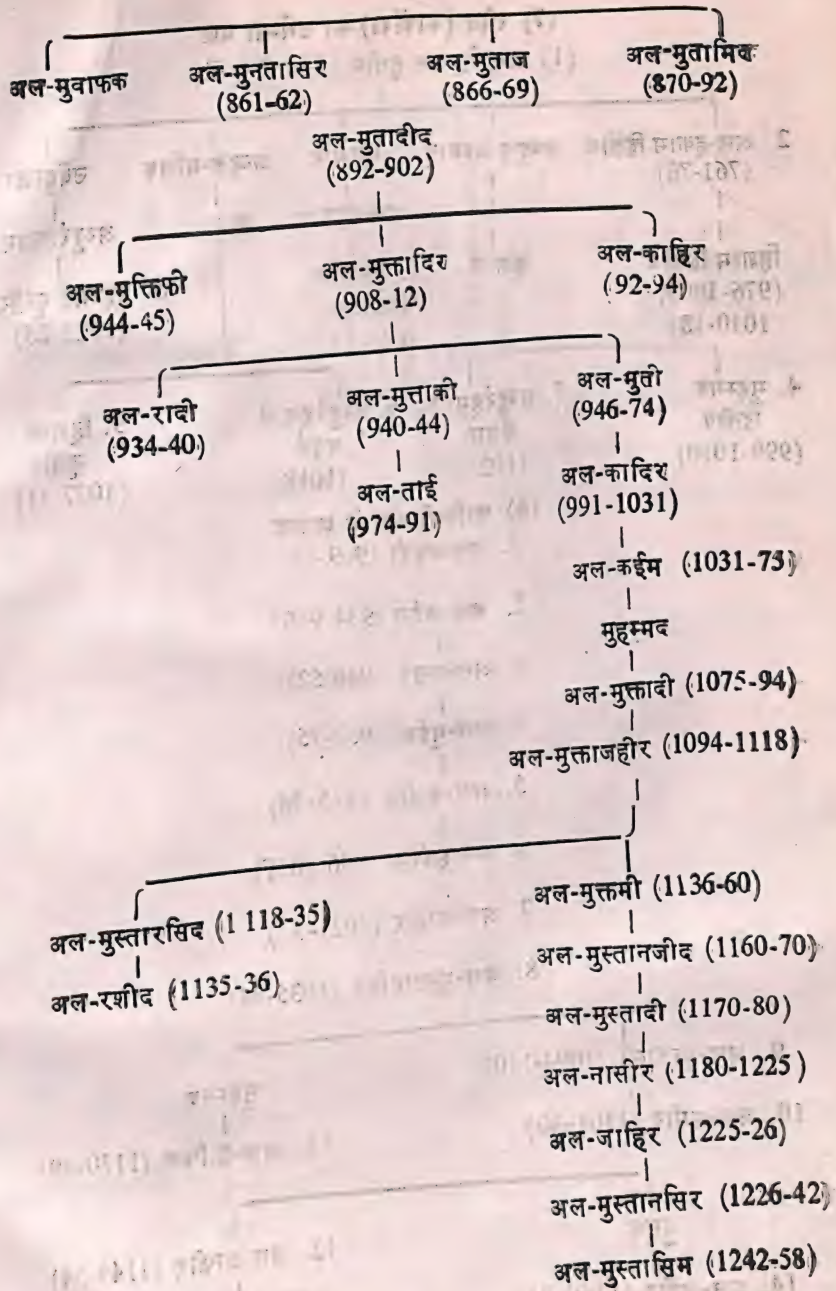 अल-मुवाफक अल-मुनतासिर अल-मुताज अल-मुतामिद
(861-62) (866-69) (870-92)
अल-मुतादीद
(892-902)
अल-मुक्तिफी अल-मुक्तादिर अल-काहिर
(944-45) (908-12) (92-94)
अल-रादी अल-मुत्ताकी अल-मुती
(934-40) (940-44) (946-74)
अल-ताई अल-कादिर
(974-91) (991-1031)
अल-कईम (1031-75)
मुहम्मद
अल-मुक्तादी (1075-94)
अल-मुक्ताजहीर (1094-1118)
अल-मुस्तारसिद (1 118-35) अल-मुक्तमी (1136-60)
अल-रशीद (1135-36) अल-मुस्तानजीद (1160-70)
अल-मुस्तादी (1170-80)
अल-नासीर (1180-1225)
अल-जाहिर (1225-26)
अल-मुस्तानसिर (1226-42)
अल-मुस्तासिम (1242-58)